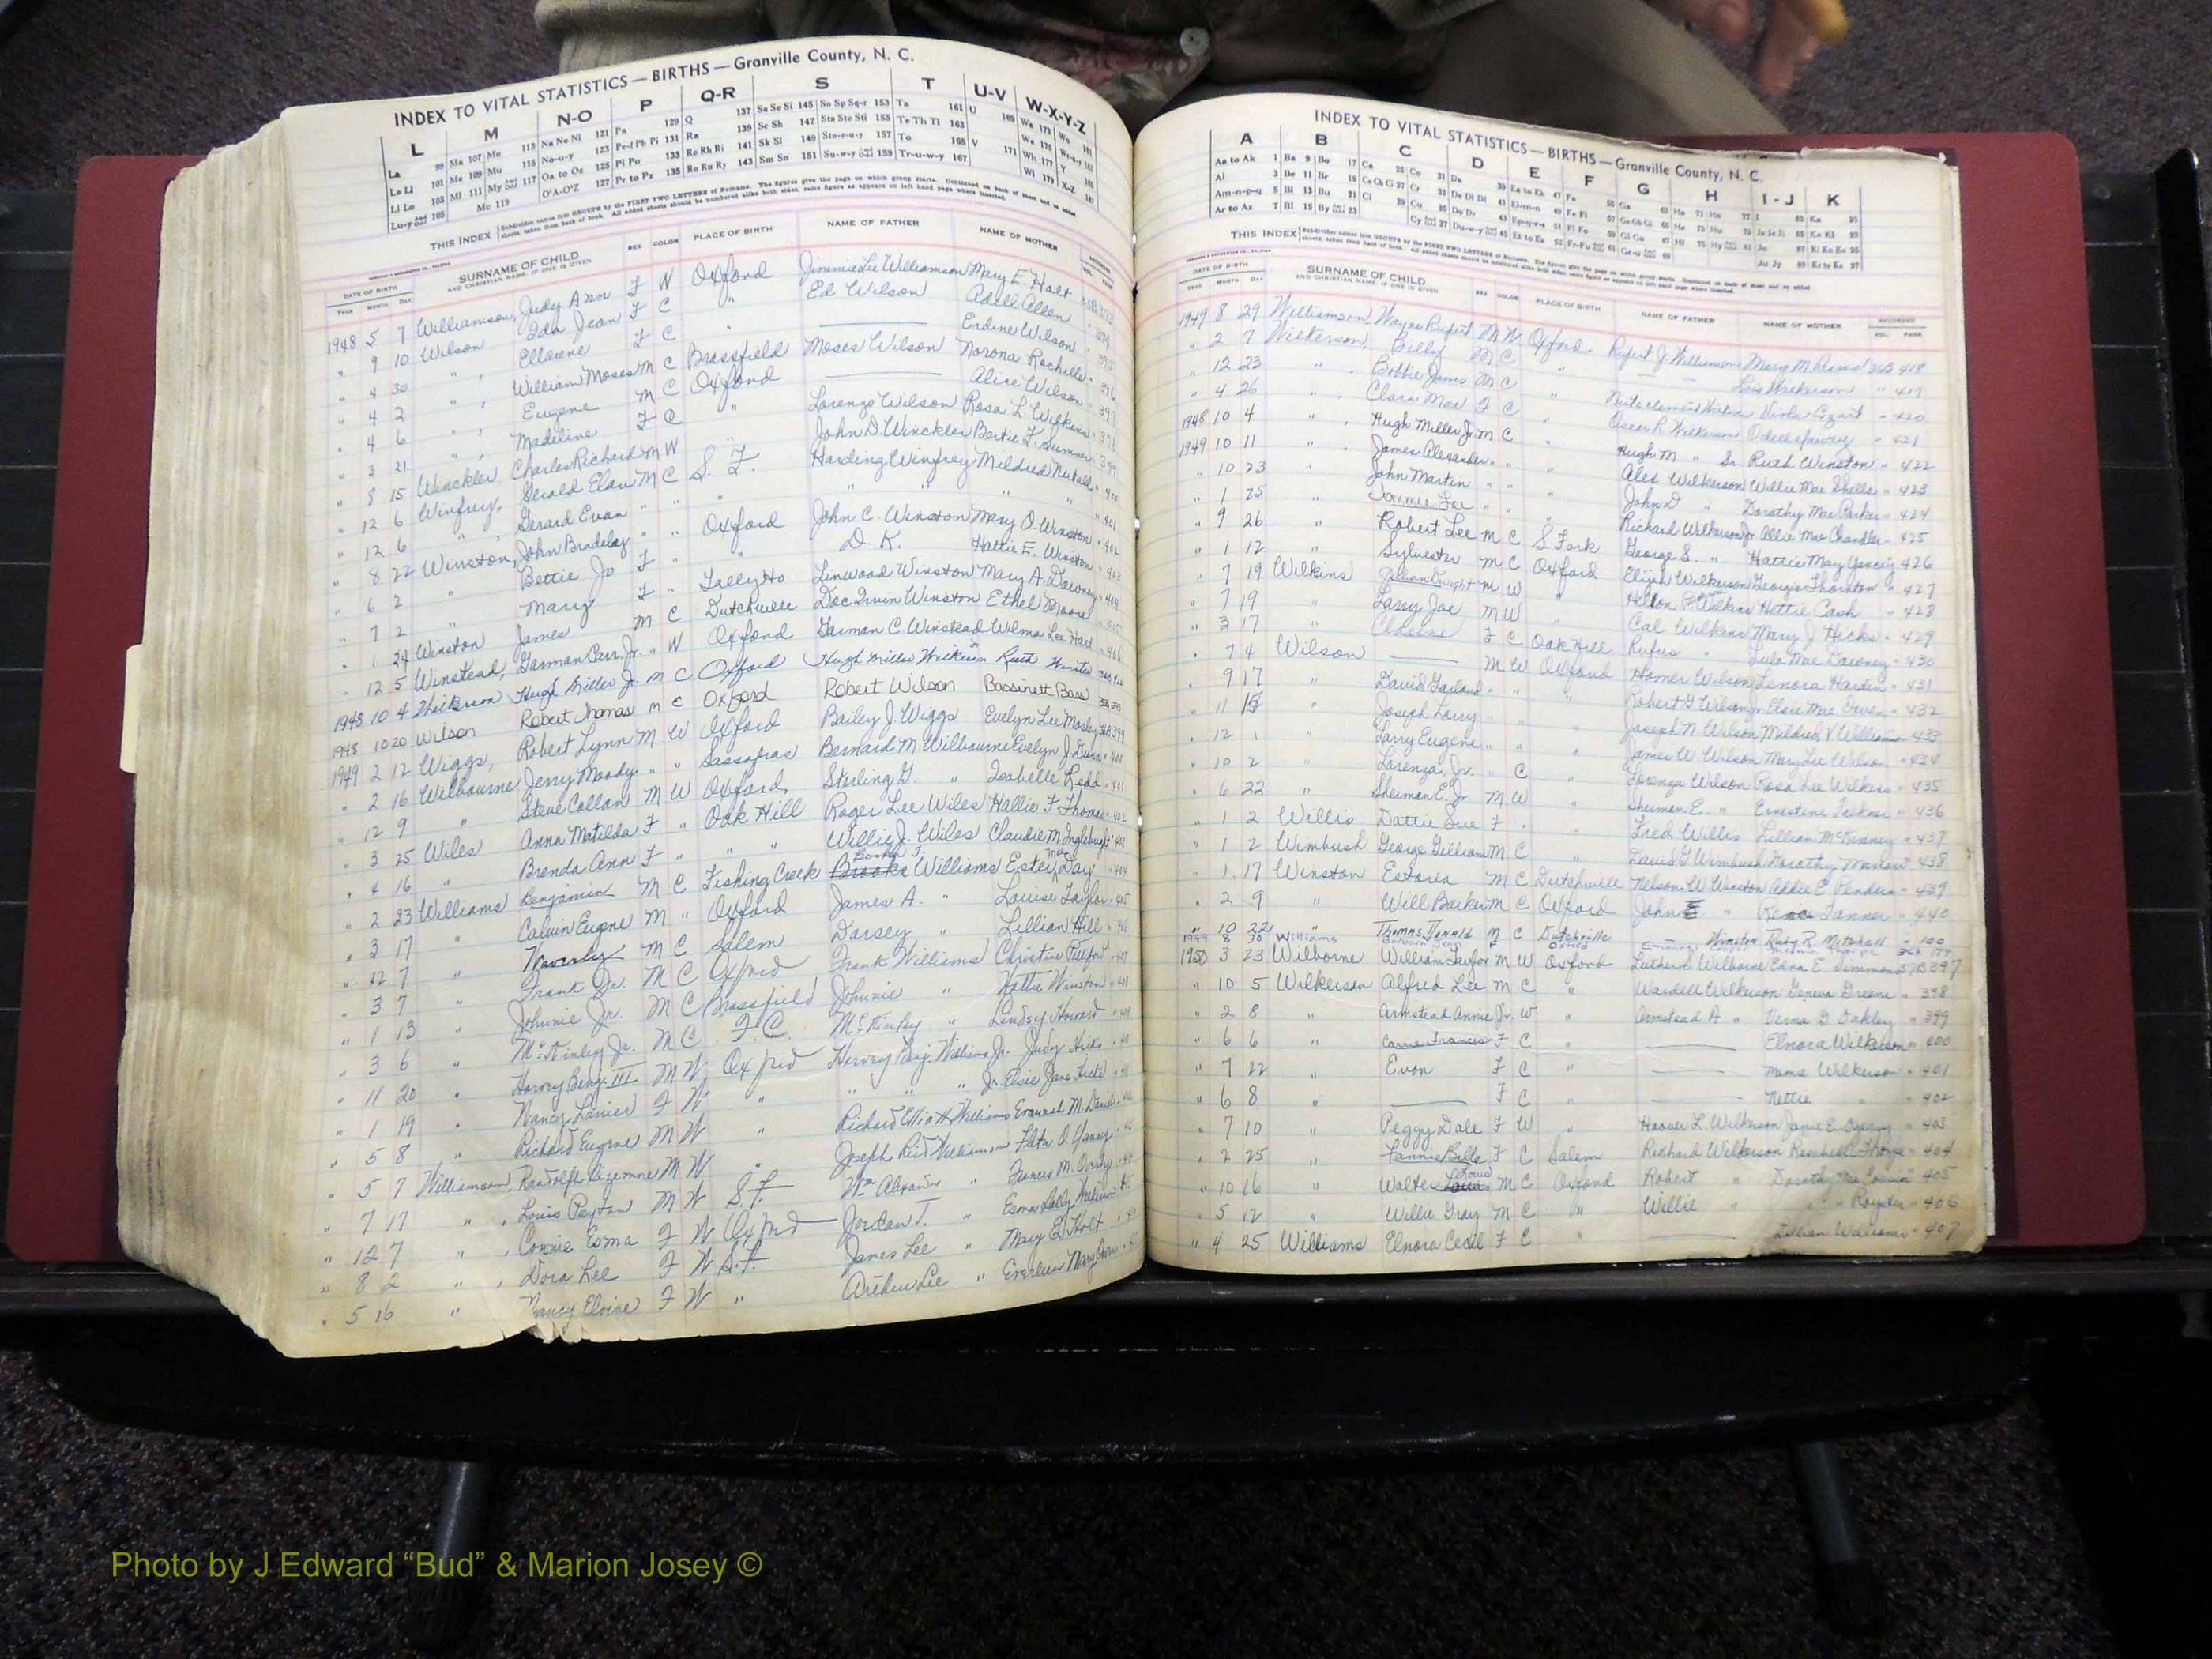 INDEX TO VITAL STATISTICS — BIRTHS — Granville County, N. C.
L M N-O P Q-R S T U-V W-X-Y-Z
La 99 Ma 107 Mo 113 Na Ne Ni 121 Pa 129 Q 137 Sa Se Si 145 So Sp Sq-r 153 Ta 161 U 169 Wa 173 Wo 181
Le Li 101 Me 109 Mu 115 No-u-y 123 Pe-f Ph Pi 131 Ra 139 Sc Sh 147 Sta Ste Sti 155 Te Th Ti 163
Li Lo 103 Mi 111 My And Odd 117 Oa to Oz 125 Pl Po 133 Re Rh Ri 141 Sk Sl 149 Sto-r-u-y 157 To 165 V 171 Wh 177 Y
Lu-y And Odd 105 Mc 119 O'A-O'Z 127 Pr to Pz 135 Ro Ru Ry 143 Sm Sn 151 Su-w-y And Odd 159 Tr-u-w-y 167 Wi 179 X-Z
THIS INDEX Subdivides names into GROUPS by the FIRST TWO LETTERS of Surname. The figures give the page on which group starts. Continued on back of sheet and on added
sheets, taken from back of book. All added sheets should be numbered alike both sides, same figure as appears on left hand page where inserted.
DATE OF BIRTH SURNAME OF CHILD SEX COLOR PLACE OF BIRTH NAME OF FATHER NAME OF MOTHER
YEAR MONTH DAY AND CHRISTIAN NAME, IF ONE IS GIVEN
1948 5 7 Williamson, Judy Ann F W Oxford Jimmie Lee Williamson Mary E. Holt
" 9 10 Wilson Ida Jean F C " Ed Wilson Adell Allen
" 4 30 " , Ellarene F C " Erdine Wilson
" 4 2 " , William Moses M C Brassfield Moses Wilson Norona Rochelle
" 4 6 " , Eugene M C Oxford Alice Wilson
" 3 21 " , Madeline F C " Lorenzo Wilson Rosa L. Wilkins
" 8 15 Winckler Charles Richard M W John D. Winckler Bertie F.
" 12 6 Winfrey, Gerald Elan M C S. F. Harding Winfrey Mildred
" 12 6 " , Gerard Evan " " " " "
" 8 22 Winston, John Bradelay " " Oxford John C. Winston Mary O. Winston
" 6 2 " Bettie Jo F " " D. K. Hattie E. Winston
" 7 2 " Mary F " Tally Ho Linwood Winston Mary A. Downey
" 1 24 Winston James M C Dutchville Doc Irvin Winston Ethel Moore
" 12 5 Winstead, Garman Carr, Jr. " W Oxford Garman C. Winstead Wilma Lee Hart
1948 10 4 Wilkerson Hugh Miller Jr. M C Oxford Hugh Miller Wilkerson Ruth Winston
1948 10 20 Wilson Robert Thomas M C Oxford Robert Wilson Bassinett Bass
1949 2 12 Wiggs, Robert Lynn M W Oxford Bailey J. Wiggs Evelyn Lee Mosley
" 2 16 Wilbourne Jerry Moody " " Sassafras Bernard M. Wilbourne Evelyn J. Dunn
" 12 9 " Steve Collan M W Oxford Sterling G. " Isabelle Redd
" 3 25 Wiles Anna Matilda F " Oak Hill Roger Lee Wiles Hallie F. Thomas
" 4 16 " Brenda Ann F " " " Willie J. Wiles Claudie M.
" 2 23 Williams Benjamin M C Fishing Creek Williams Ester Mae Day
" 3 17 " Calvin Eugne M " Oxford James A. " Louise Taylor
" 12 7 " Waverly M C Salem Darsey " Lillian Hill
" 3 7 " Frank Jr. M C Oxford Frank Williams Christine
" 1 13 " Johnnie Jr. M C Brassfield Johnnie " Hattie Winston
" 3 6 " McKinley Jr. M C F. C. McKinley " Lindsy Howard
" 11 20 " Harvey Benj. III M W Oxford Harvey Benj. Williams Jr. Judy Hicks
" 1 19 " Nancy Lanier F W " " " " Jr. Elsie Jane
" 5 8 " Richard Eugene M W " Richard Elliott Williams M. Daniel
" 5 7 Williamson, Randolph M W " Joseph Reid Williamson O. Yancey
" 7 17 " , Louis Payton M W S.F. Wm Alexander " Frances M.
" 12 7 " , Connie Esma F W Oxford Jordan T. " Esma
" 8 2 " , Dora Lee F W S.F. James Lee " Mary E. Holt
" 5 16 " Nancy Eloise F W " Arthur Lee "
INDEX TO VITAL STATISTICS — BIRTHS — Granville County, N. C.
A B C D E F G H I-J K
Aa to Ak 1 Ba 9 Bo 17 Ca 25 Co 31 Da 39 Ea to Ek 47 Fa 55 Ga 63 Ha 71 Ho 77 I 83 Ka 91
Al 3 Be 11 Br 19 Ce Ch Ci 27 Cr 33 De Di Dl 41 El-m-n 49 Fe Fi 57 Ge Gh Gi 65 He 73 Hu 79 Ja Je Ji 85 Ke Kl 93
Am-n-p-q 5 Bi 13 Bu 21 Cl 29 Cu 35 Do Dr 43 Ep-q-r-s 51 Fl Fo 59 Gl Go 67 Hi 75 Hy And Odd 81 Jo 87 Ki Kn Ko 95
Ar to Az 7 Bl 15 By And Odd 23 Cy And Odd 37 Du-w-y And Odd 45 Et to Ez 53 Fr-Fu And Odd 61 Gr-u-y And Odd 69 Ju Jy 89 Kr to Kz 97
THIS INDEX Subdivides names into GROUPS by the FIRST TWO LETTERS of Surname. The figures give the page on which group starts. Continued on back of sheet and on added
sheets, taken from back of book. All added sheets should be numbered alike both sides, same figure as appears on left hand page where inserted.
DATE OF BIRTH SURNAME OF CHILD SEX COLOR PLACE OF BIRTH NAME OF FATHER NAME OF MOTHER RECORDED
YEAR MONTH DAY AND CHRISTIAN NAME, IF ONE IS GIVEN VOL. PAGE
1949 8 29 Williamson, Wayne Rupert M W Oxford Rupert J. Williamson Mary M. 418
" 2 7 Wilkerson, Billy M C " Lois Wilkerson " 419
" 12 23 " , Bobbie James M C Viola Cozart " 420
" 4 26 " , Clara Mae F C " Oscar R. Wilkerson Odell " 421
1948 10 4 " , Hugh Miller Jr. M C " Hugh M " Sr. Ruth Winston " 422
1949 10 11 " James Alexander " " " Alex Wilkerson Willie Mae Shells " 423
" 10 23 " John Martin " " " John D " Dorothy Mae Parker " 424
" 1 25 " Jonnie Fae " " " Richard Wilkerson Jr. Allie Mae Chandler " 425
" 9 26 " Robert Lee M C S. Fork George S. " Hattie May Yancey " 426
" 1 12 " Sylvester M C Oxford Elijah Wilkerson Georgia Thornton " 427
" 7 19 Wilkins Dwight M W " Wilkins Hettie Cash " 428
" 7 19 " Larry Joe M W " Cal Wilkins Mary J. Hicks " 429
" 3 17 " F C Oak Hill Rufus " Lula Mae Downey " 430
" 7 4 Wilson M W Oxford Homer Wilson Lenora Hardin " 431
" 9 17 " David Garland " " " Robert G. Wilson Jr. Elsie Mae " 432
" 11 " Joseph Larry " " Joseph N. Wilson Mildred V. Williams 433
" 12 1 " Larry Eugene " " " James W. Wilson Mary Lee Wilson " 434
" 10 2 " Lorenza, Jr. " C " Lorenza Wilson Rosa Lee Wilkins " 435
" 6 22 " Sherman E. Jr M W " Sherman E. " Ernestine " 436
" 1 2 Willis Dattie Sue F " Fred Willis Lillian McKinney " 437
" 1 2 Wimbush George Gilliam M C " David G Wimbush Dorothy " 438
" 1 17 Winston Estoria M C Dutchville Nelson W. Winston Addie E. " 439
" 2 9 " Will Barker M C Oxford John E " Tanner " 440
" 10 22 " Thomas Donald M C Dutchville Winston Ruby R. Mitchell " 100
1949 8 30 Williams Oxford
1950 3 23 Wilborne William Taylor M W Oxford Luther Wilborne Edna E. Simmons 397
" 10 5 Wilkerson Alfred Lee M C " Wardell Wilkerson Geneva Greene " 398
" 2 8 " Armstead Annie Jr. W " Armstead A " Verna G. Oakley " 399
" 6 6 " Carrie Frances F C " Elnora Wilkerson " 400
" 7 22 " Evon F C " Mamie Wilkerson " 401
" 6 8 " F C " Nettie " " 402
" 7 10 " Peggy Dale F W " Hoover L. Wilkerson Janie E. " 403
" 2 25 " Fannie Bells F C Salem Richard Wilkerson Thorpe " 404
" 10 16 " Walter Louis M C Oxford Robert " Dorothy 405
" 5 12 " Willie Gray M C " Willie " " Royster " 406
" 4 25 Williams Elnora Cecil F C " Lillian Williams " 407
Photo by J Edward “Bud” & Marion Josey ©